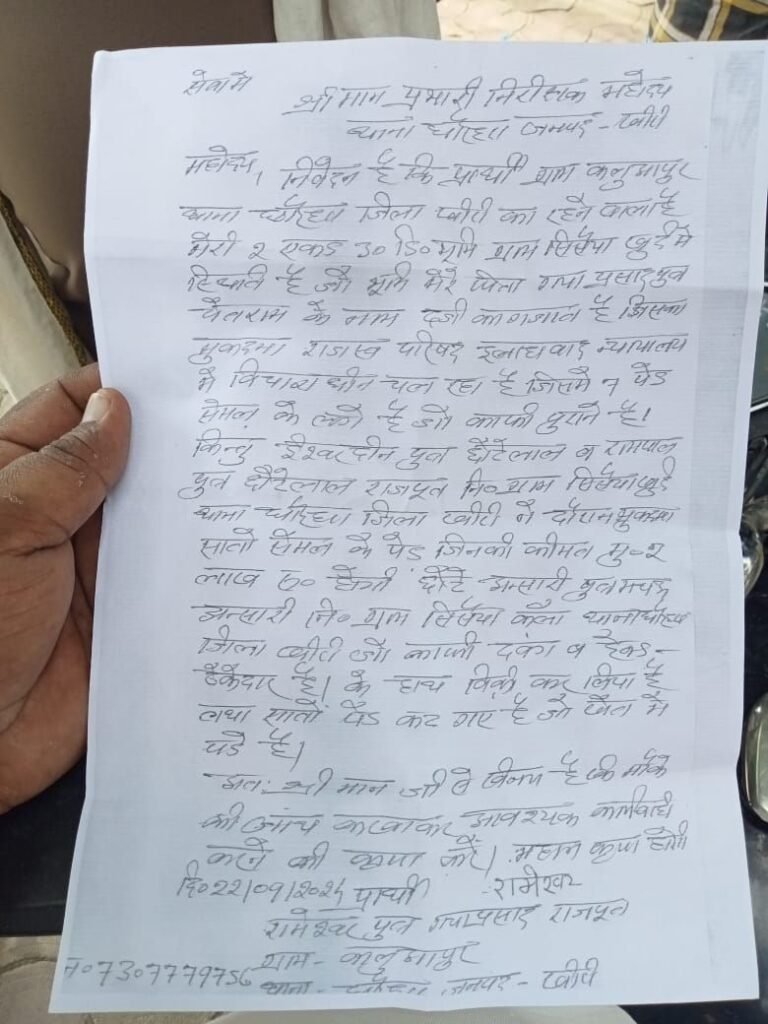 सेवामे
श्रीमान प्रभारी निरीक्षक महोदय
थाना धौरहरा जनपद - खीरी
महोदय, निवेदन है कि प्रार्थी ग्राम कलुआपुर
थाना धौरहरा जिला खीरी का रहने वाला है
मेरी २ एकड 30 डि० भूमि ग्राम सिसैया खुर्द मे
स्थिति है जो भूमि मेरे पिता गया प्रसाद पुत्र
चैतराम के नाम दर्ज कागजात है जिसका
मुकदमा राजास्व परिषद इलाहावाद न्यायालय
मे विचाराधीन चल रहा है जिसमे 7 पेड
सेमल के लगे है जो काफी पुराने है।
किन्तु ईश्वरदीन पुत्र छोटेलाल व रामपाल
पुत्र छोटेलाल राजपूत नि० ग्राम सिसैया खुर्द
थाना धौरहरा जिला खीरी ने दौरान मुकदमा
सातो सेमल के पेड जिनकी कीमत मु० २
लाख रू० होगी छोटे अन्सारी पुत्र
अन्सारी नि० ग्राम सिसैया कला थाना धौरहरा
जिला खीरी जो काफी दबंग व हैकड -
ठेकेदार है। के हाथ विक्री कर लिया है
तथा सातो पेड कट गए है जो खेत मे
पडे है।
अत: श्री मान जी से विनय है कि मौके
की जांच करवाकर आवश्यक कार्यवाही
करने की कृपा करें। महान कृपा होगी
दि० 22/09/2024 प्रार्थी रामेश्वर
रामेश्वर पुत्र गयाप्रसाद राजपूत
ग्राम - कलुआपुर
न० 7307779756 थाना - धौरहरा जनपद - खीरी